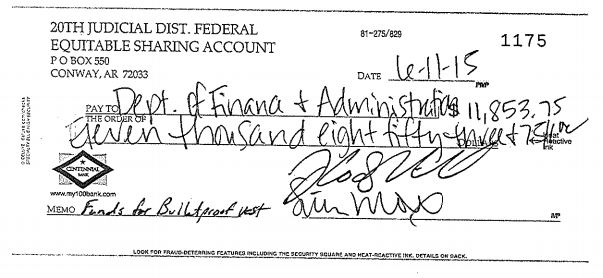 20TH JUDICIAL DIST. FEDERAL
EQUITABLE SHARING ACCOUNT
P O BOX 550
CONWAY, AR 72033
81-275/829
1175
DATE 6-11-15
PAY TO
THE ORDER OF Dept. of Finance + Administration $ 11,853.75
Eleven thousand eight fifty three + 75/100 DOLLARS
Heat
Reactive
Ink
CENTENNIAL
BANK
www.my100bank.com
MEMO Funds for Bulletproof vest
MP
LOOK FOR FRAUD-DETERRING FEATURES INCLUDING THE SECURITY SQUARE AND HEAT-REACTIVE INK. DETAILS ON BACK.